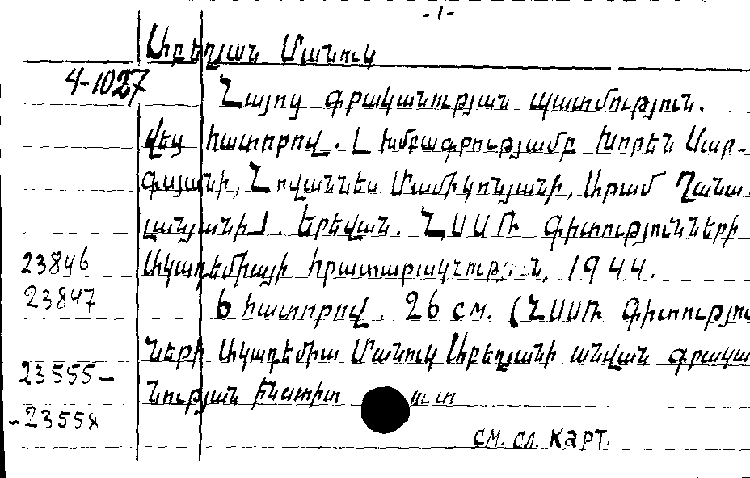 -1-
Աբեղյան Մանուկ
4-1027
Հայոց գրականության պատմություն.
վեց հատորով. [Խմբագրությամբ Խորեն Սար-
գսյանի, Հովաննես Մամիկոնյանի, Արամ Ղանա
լանյանի]. Երեվան. ՀՍՍՌ Գիտությունների
23846 Ակադեմիայի հրատարակչություն, 1944.
23847 6 հատորով. 26 см. (ՀՍՍՌ Գիտությու
ների Ակադեմիա Մանուկ Աբեղյանի անվան գրակա
23555-
նության
-23558
см. сл. карт.